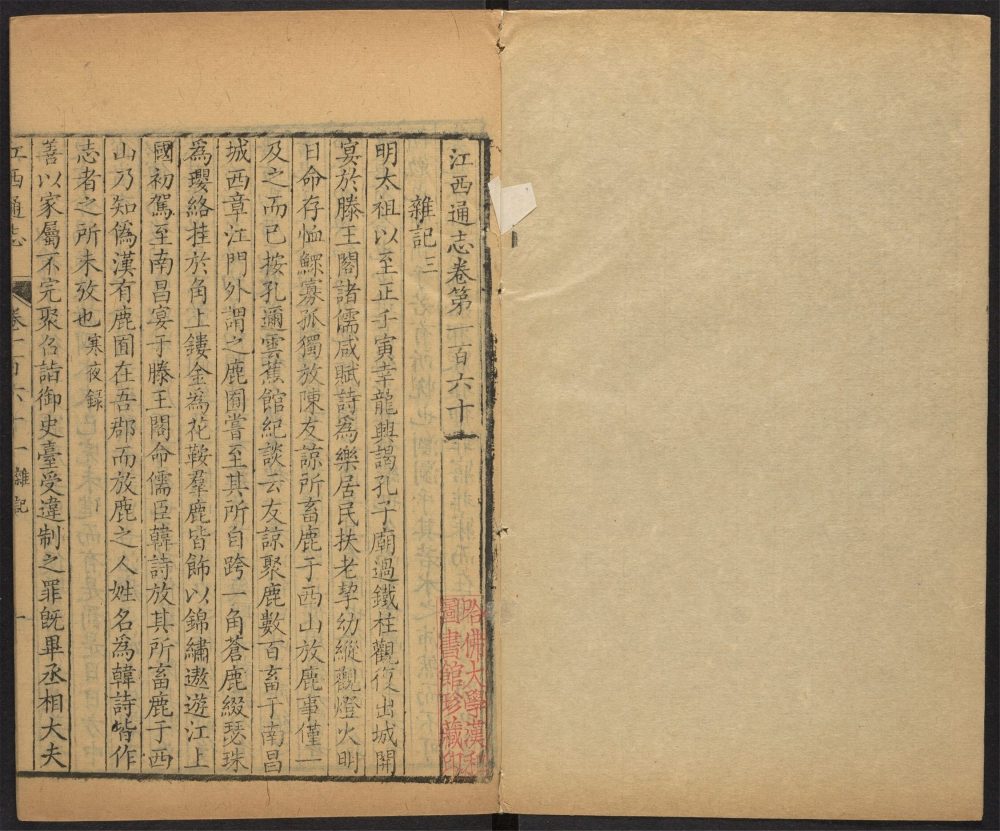 江西通志卷第一百六十一
雜記三
明太祖以至正壬寅幸龍興謁孔子廟過鐵柱觀復出城開
宴於滕王閣諸儒咸賦詩為樂居民扶老挈幼縱觀燈火明
日命存恤鰥寡孤獨放陳友諒所畜鹿于西山放鹿事僅一
及之而已按孔邇雲蕉館紀談云友諒聚鹿數百畜于南昌
城西章江門外謂之鹿囿嘗至其所自跨一角蒼鹿綴瑟珠
為瓔絡挂於角上鏤金為花鞍羣鹿皆飾以錦繡遨遊江上
國初駕至南昌宴于滕王閣命儒臣韓詩放其所畜鹿于西
山乃知偽漢有鹿囿在吾郡而放鹿之人姓名為韓詩皆作
志者之所未攷也寒夜録
善以家屬不完聚召詣御史臺受違制之罪旣畢丞相大夫
江西通志 卷一百六十一 雜記 一
哈佛大學漢和
圖書館珍藏印